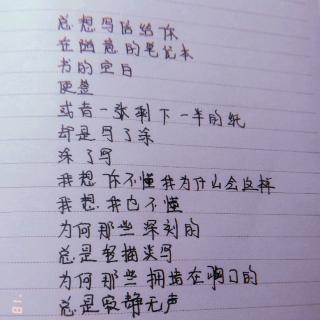 总想写信给你
在随意的笔记本
书的空白
便签
或者一张剩下一半的纸
却是写了涂
涂了写
我想你不懂我为什么会这样
我想我也不懂
为何那些深刻的
总是轻描淡写
为何那些拥堵在胸口的
总是寂静无声
81'